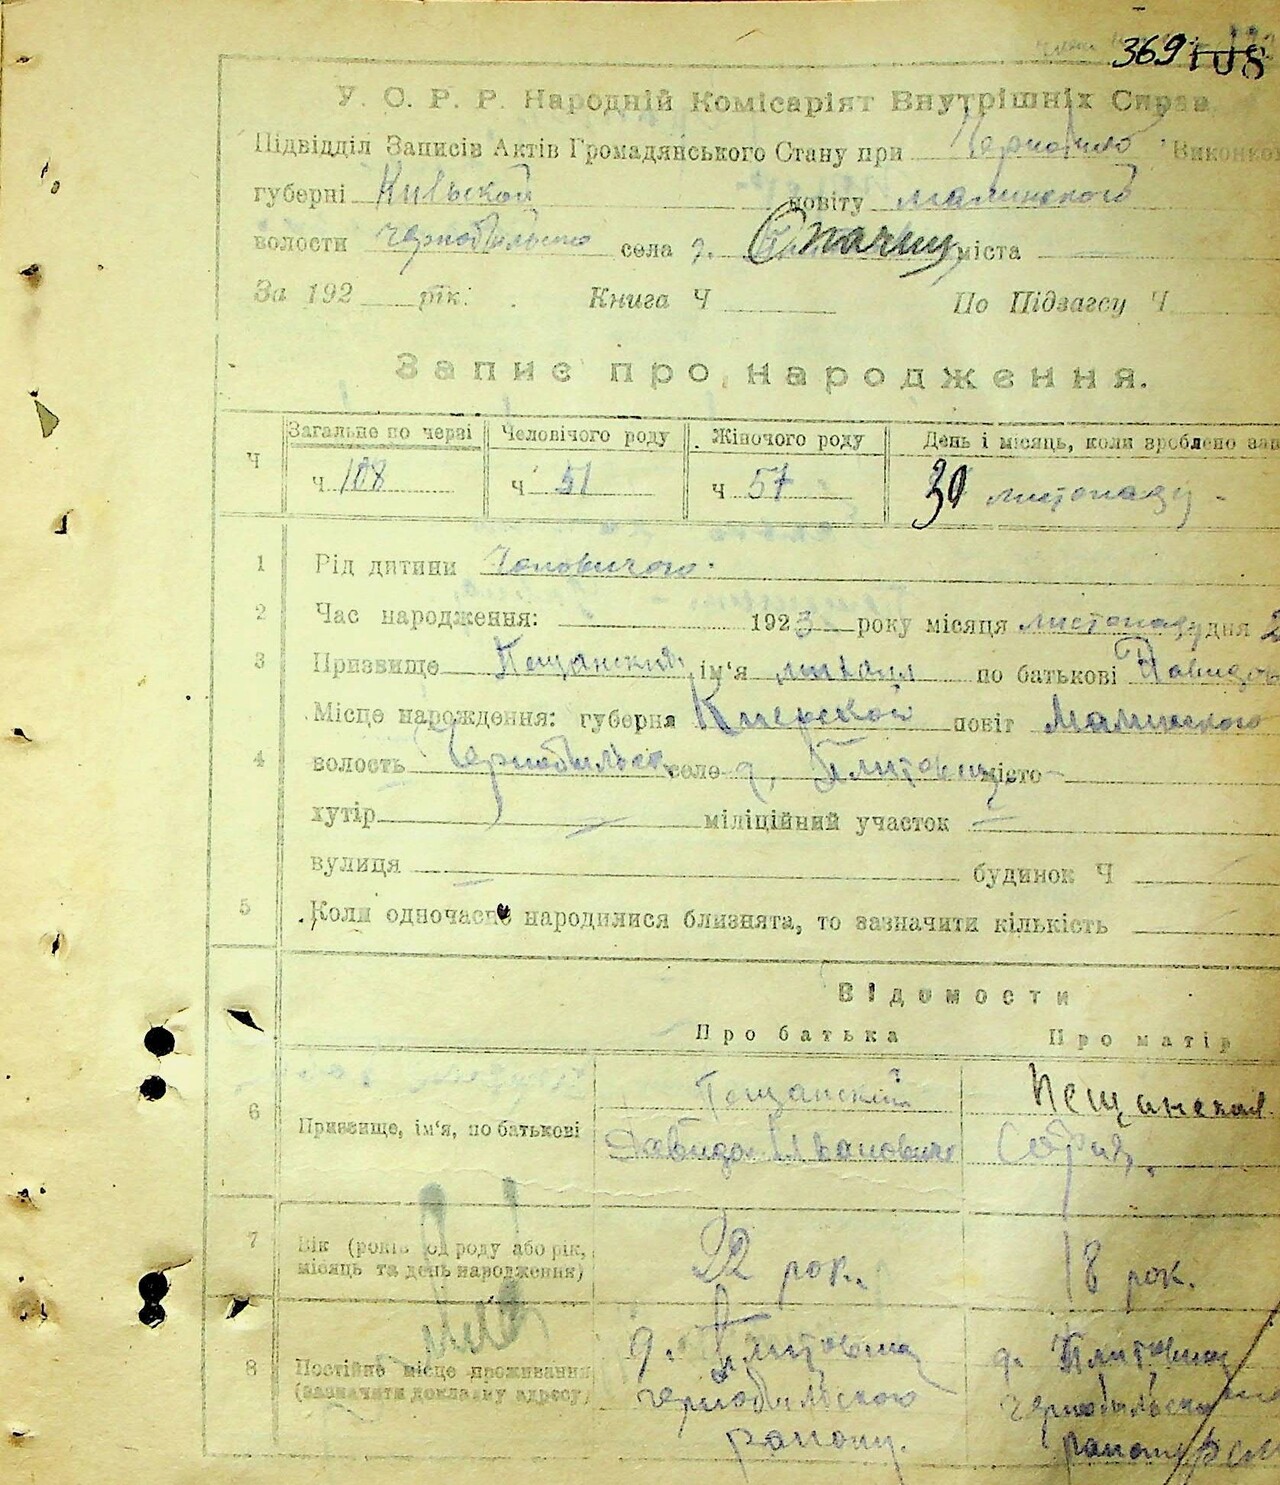 369 108
У. О. Р. Р. Народній Комісаріят Внутрішніх Справ.
Підвідділ Записів Актів Громадянського Стану при Виконко
губерні Київської повіту Малинского
волости села д. Опачичі міста
За 192 рік. Книга Ч По Підзагсу Ч
Запис про народження.
Ч Загальне по черзі Человічого роду Жіночого роду День і місяць, коли зроблено зап
ч 108 ч 51 ч 57 30 листопаду
1 Рід дитини Чоловичого.
2 Час народження: 1923 року місяця листопаду дня 2
3 Призвище Пещанский ім'я михаил по батькові Давидов
Місце народження: губерня Киевской повіт Малинского
4 волость село д. місто
хутір міліційний участок
вулиця будинок Ч
5 Коли одночасне народилися близнята, то зазначити кількість
Відомости
Про батька Про матір
6 Призвище, ім'я, по батькові Пещанский Пещанская
Давида Ивановича София.
7 Вік (років од роду або рік, місяць та день народження) 22 рок. 18 рок.
8 Постійне місце проживання (зазначити докладну адресу) д. д.
району. району